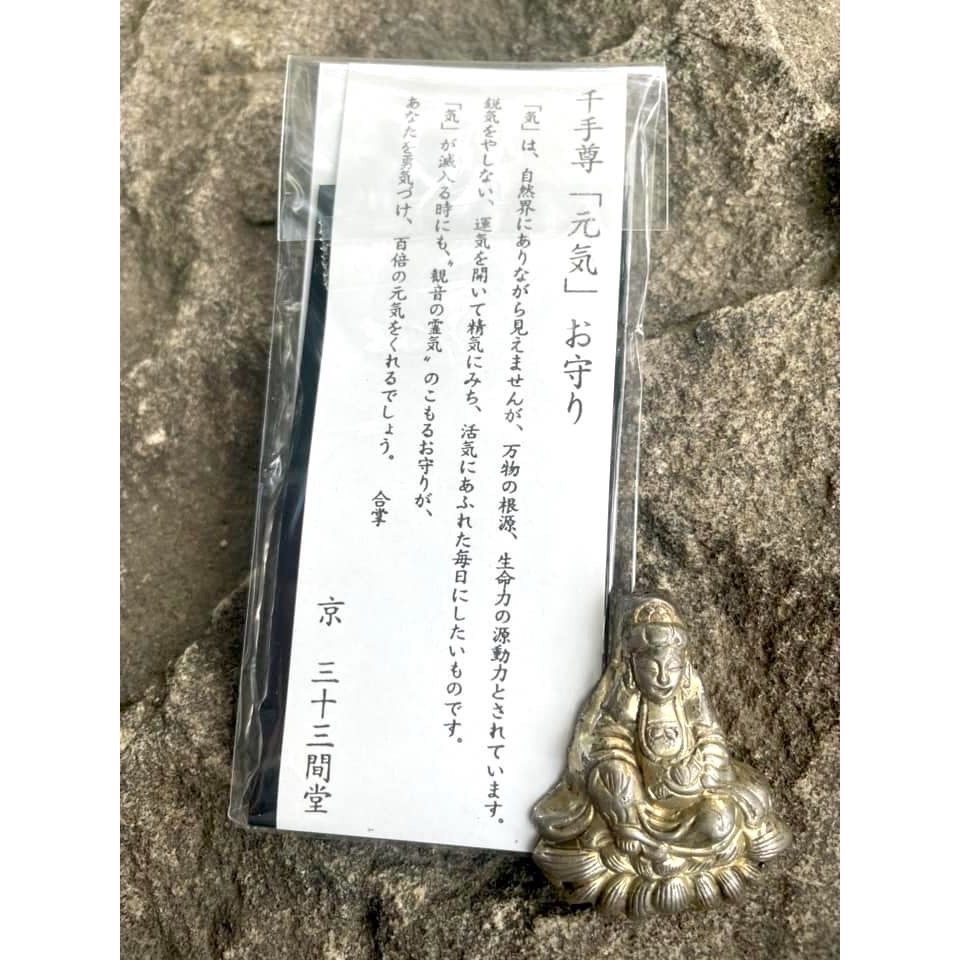 千手尊「元気」お守り
「気」は、自然界にありながら見えませんが、万物の根源、生命力の源動力とされています。
鋭気をやしない、運気を開いて精気にみち、活気にあふれた毎日にしたいものです。
「気」が滅入る時にも、〝観音の霊気〟のこもるお守りが、
あなたを勇気づけ、百倍の元気をくれるでしょう。
合掌
京 三十三間堂